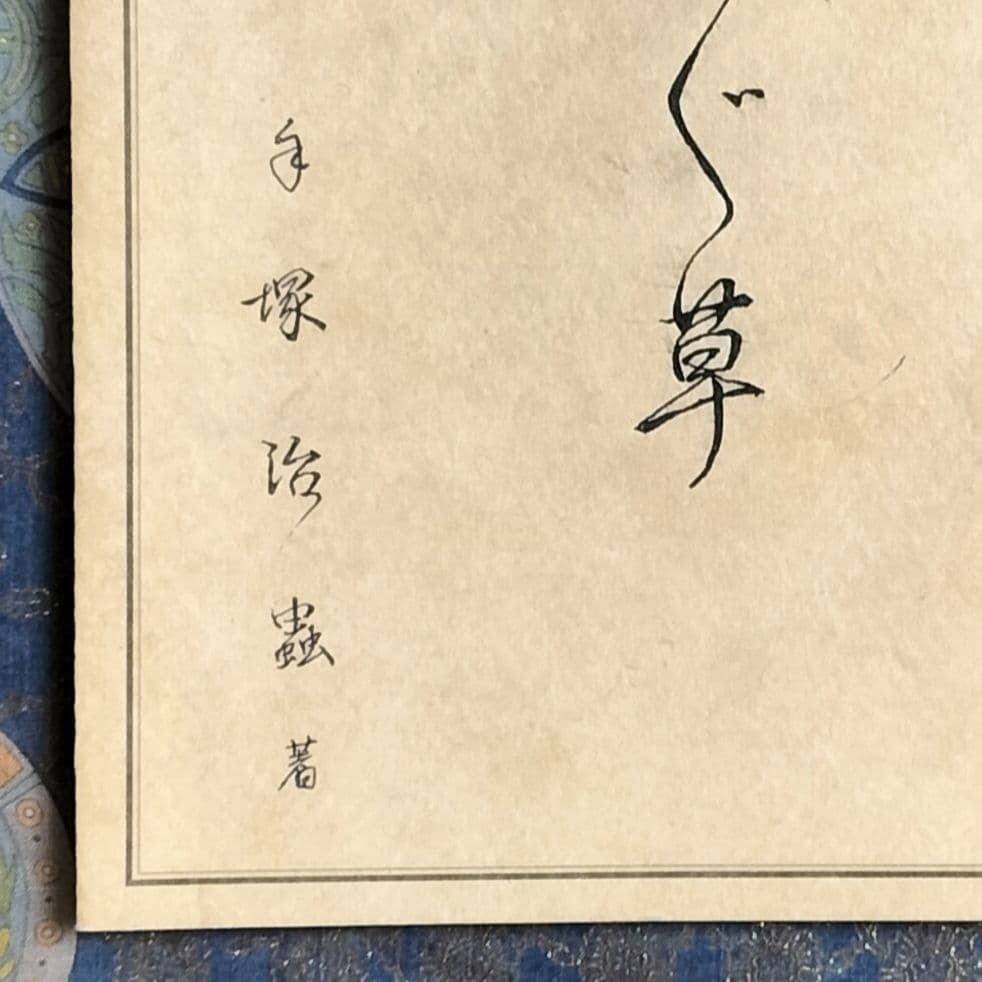 ぐ草
手塚治蟲著